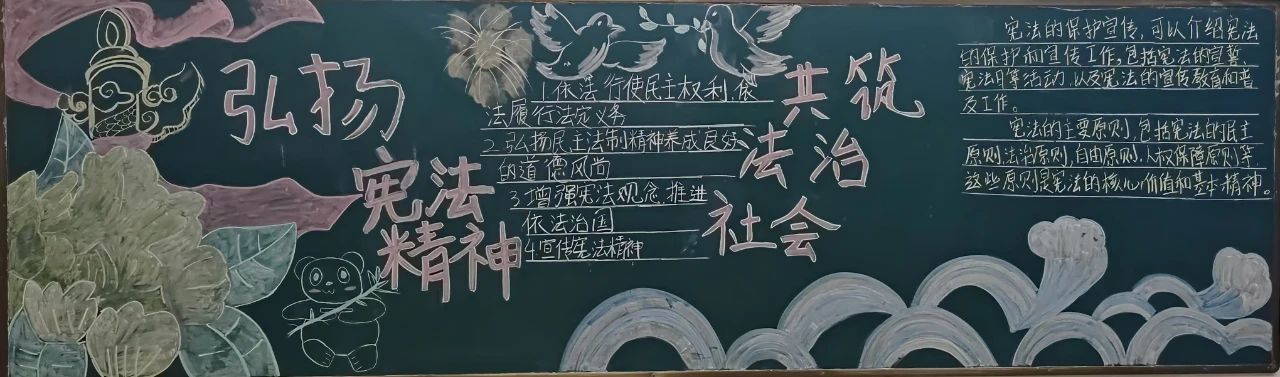 弘扬
宪法
精神
1.依法行使民主权利,依
法履行法定义务
2.弘扬民主法制精神养成良好
的道德风尚
3.增强宪法观念,推进
依法治国
4.宣传宪法精神
共筑
法治
社会
宪法的保护宣传,可以介绍宪法
的保护和宣传工作,包括宪法的宣誓
宪法日等活动,以及宪法的宣传教育和普
及工作。
宪法的主要原则,包括宪法的民主
原则,法治原则,自由原则,人权保障原则等,
这些原则是宪法的核心价值和基本精神。